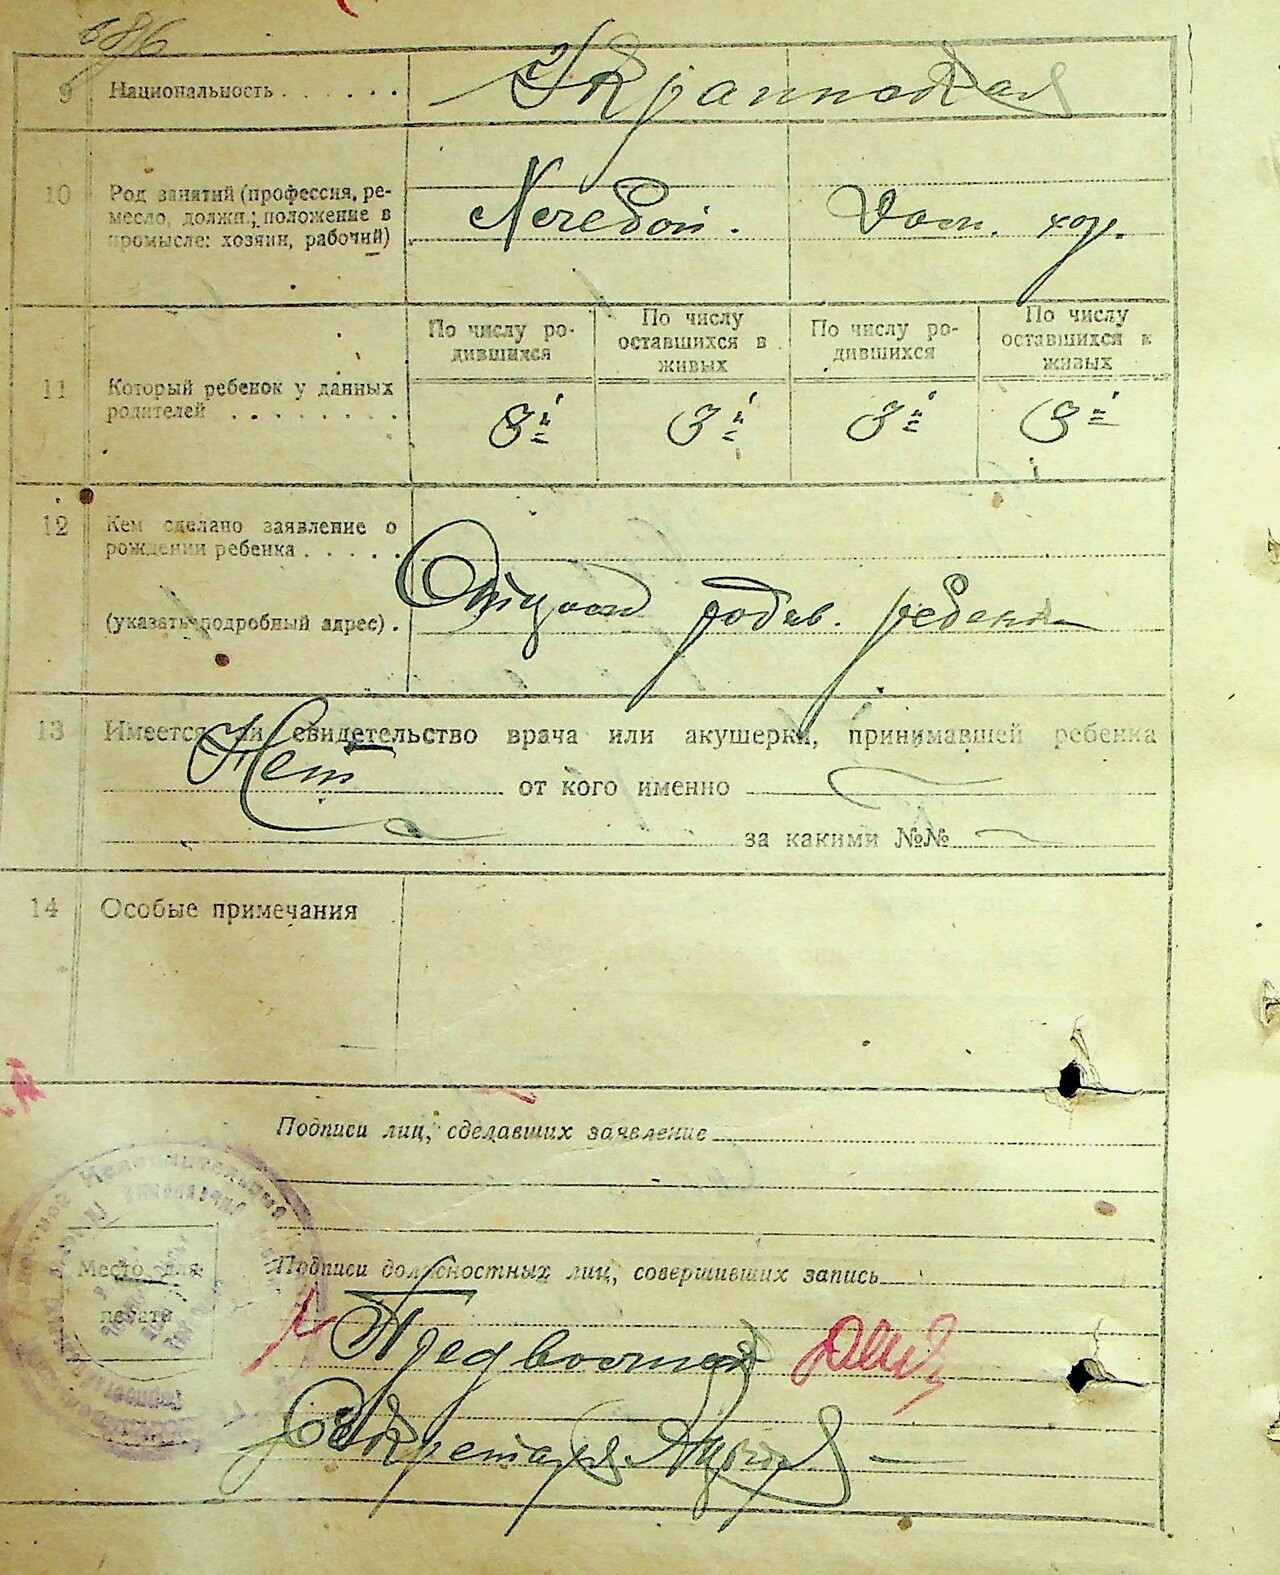 686
9 Национальность . . . . . . Украинская
10 Род занятий (профессия, ре-
месло, должн.; положение в
промысле: хозяин, рабочий)
Дом. хоз.
По числу ро-
дившихся
По числу
оставшихся в
живых
По числу ро-
дившихся
По числу
оставшихся в
живых
11 Который ребенок у данных
родителей . . . . . . . .
3й 3й 3й 3й
12 Кем сделано заявление о
рождении ребенка . . . . .
(указать подробный адрес) .
Отцом родив. ребенка
13 Имеется ли свидетельство врача или акушерки, принимавшей ребенка
Нет от кого именно —
за какими №№ —
14 Особые примечания
Подписи лиц, сделавших заявление
Место для
печати
Подписи должностных лиц, совершивших запись
Секретарь